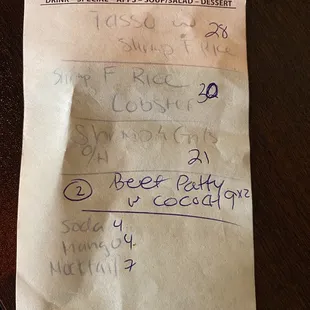 DRINK - SPECIAL - APPS - SOUP/SALAD - DESSERT
Tasso w 28
Shrimp F Rice
Shrimp F Rice
Lobster 30
Shrimp & Grits
O/H 21
② Beef Patty
w cocoa 9x2
Soda 4
Mango 4
Mocktail 7